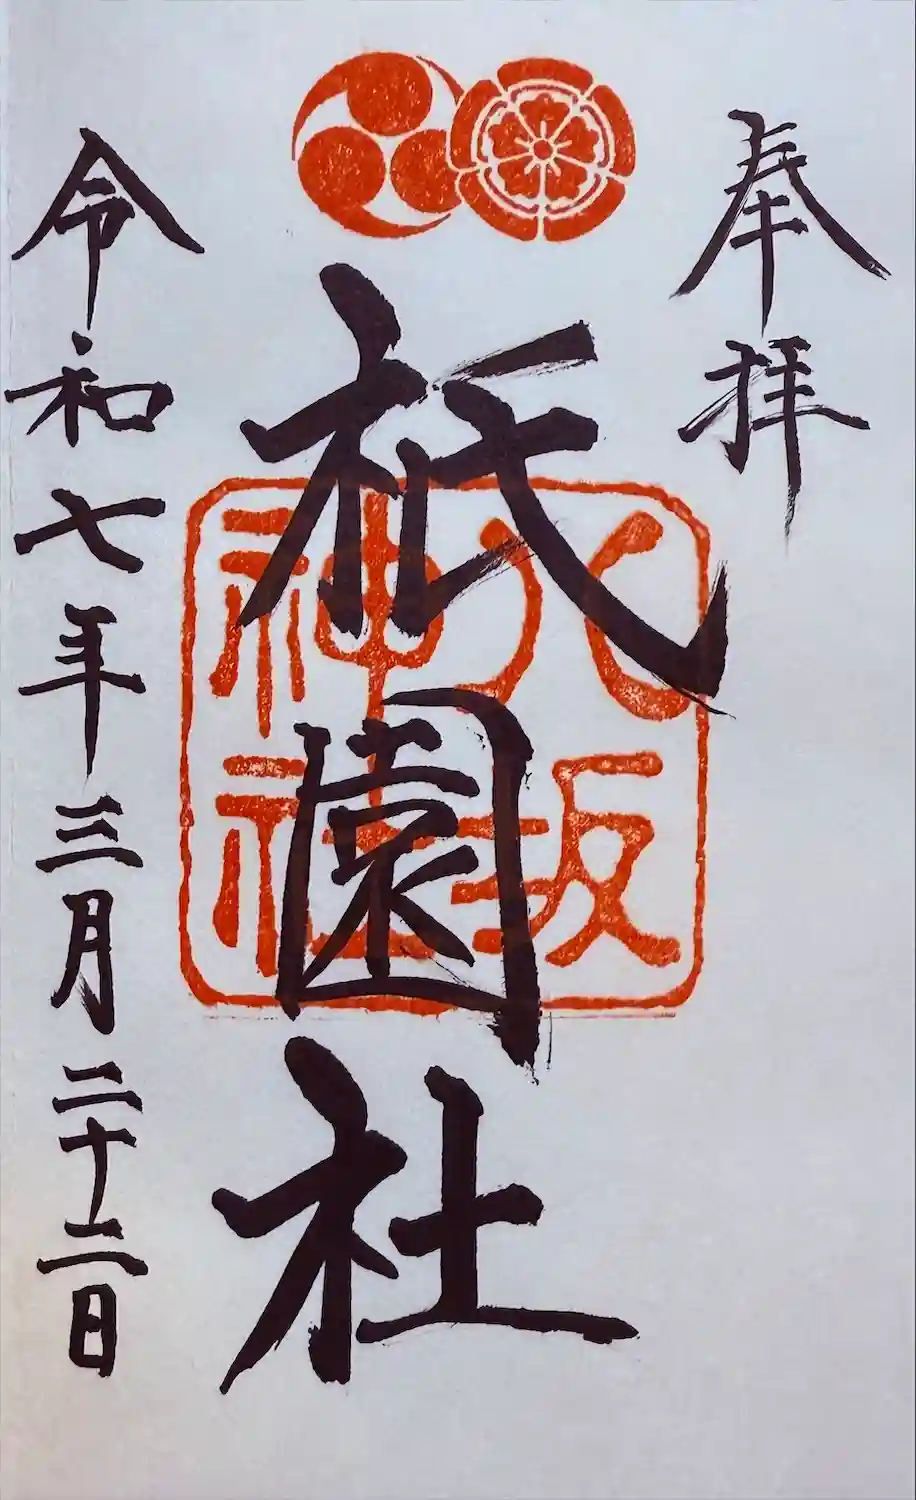 奉拝
祇園社
八坂
神社
令和七年三月二十二日